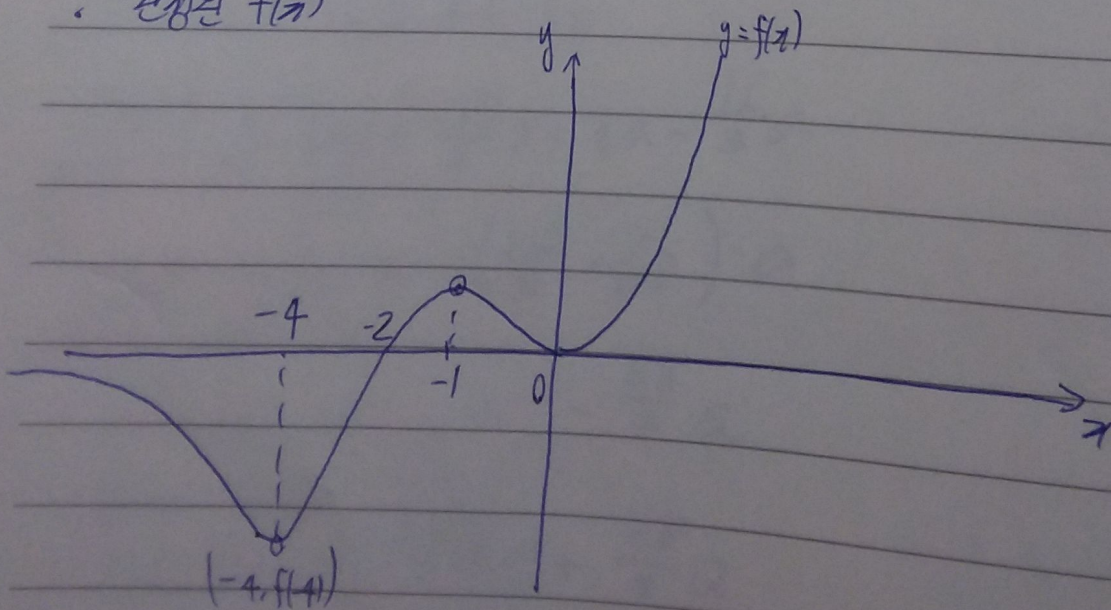 . f(x)
y
y=f(x)
-4
-2
-1
0
x
(-4, f(-4))